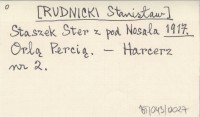 [RUDNICKI Stanisław]
Staszek Ster z pod Nosala 1917.
Orlą Percią. – Harcerz
nr 2.